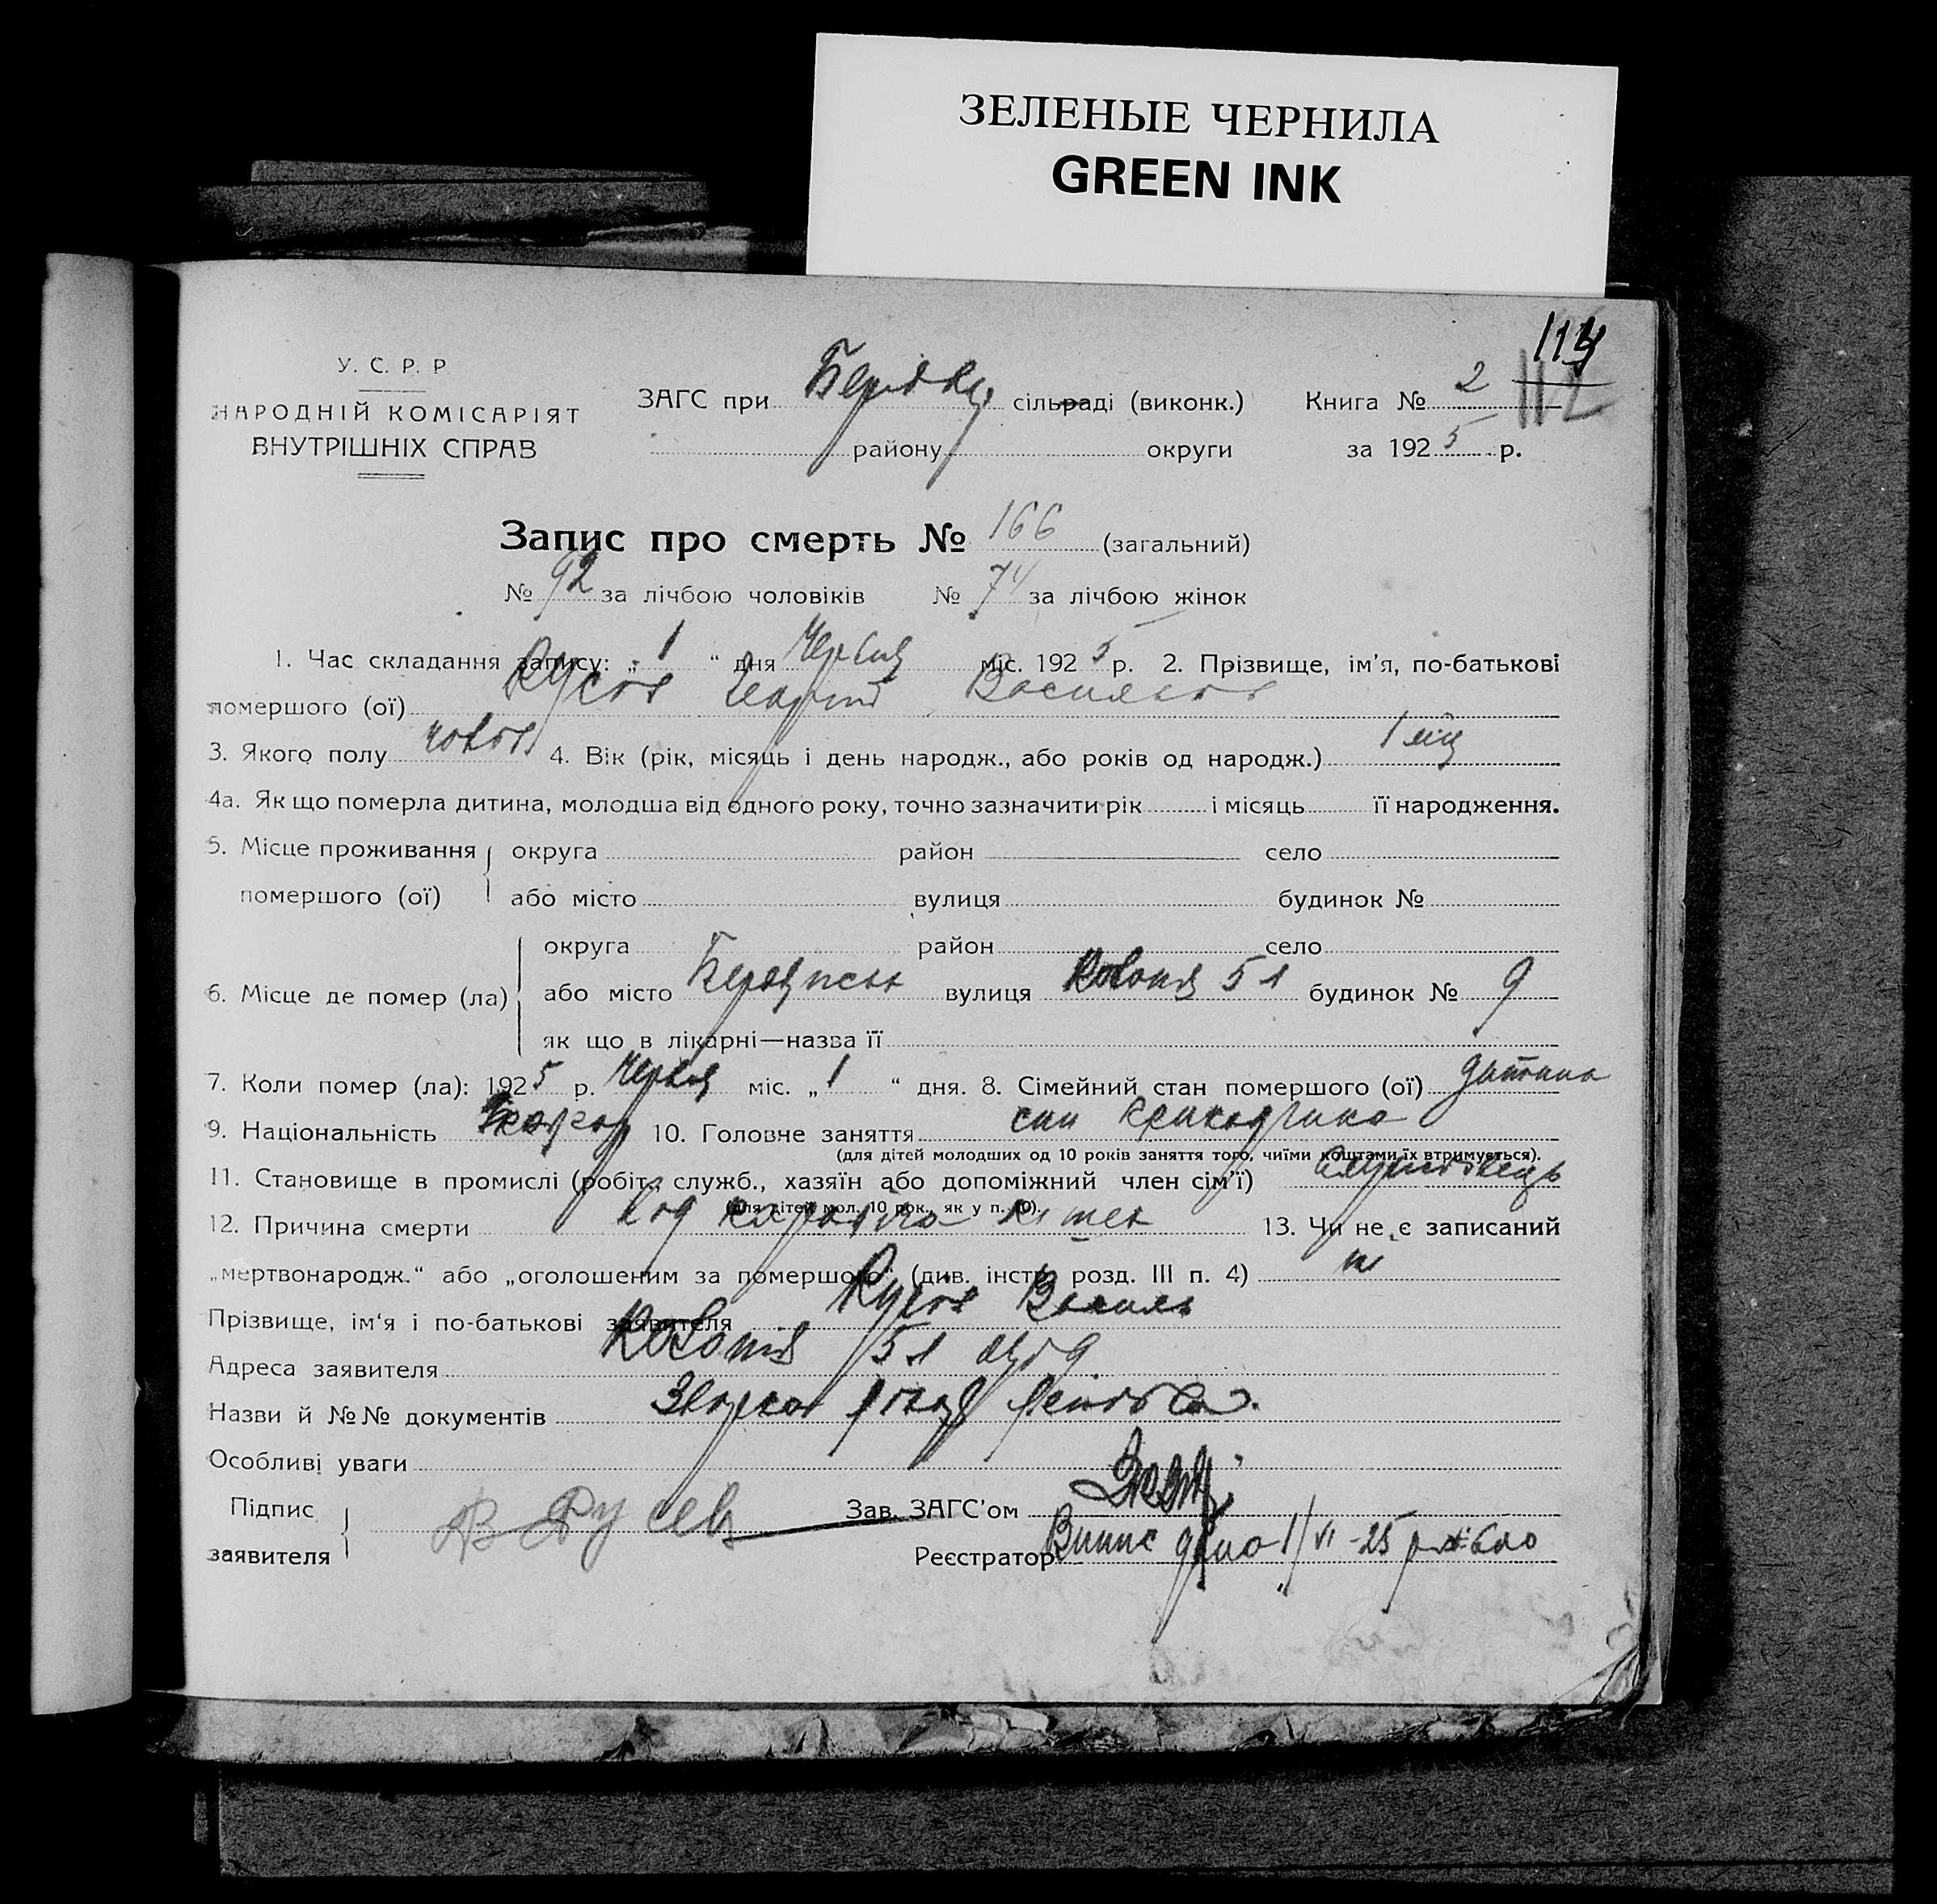 ЗЕЛЕНЫЕ ЧЕРНИЛА
GREEN INK
114
112
У. С. Р. Р
НАРОДНІЙ КОМІСАРІЯТ
ВНУТРІШНІХ СПРАВ
ЗАГС при сільраді (виконк.) Книга № 2
району округи за 1925 р.
Запис про смерть № 166 (загальний)
№ 92 за лічбою чоловіків № 74 за лічбою жінок
1. Час складання запису: „ 1 “ дня Червня міс. 1925 р. 2. Прізвище, ім’я, по-батькові
помершого (ої) Русов Васильов
3. Якого полу чолов 4. Вік (рік, місяць і день народж., або років од народж.) 1 міц
4а. Як що померла дитина, молодша від одного року, точно зазначити рік і місяць її народження.
5. Місце проживання округа район село
помершого (ої) або місто вулиця будинок №
округа район село
6. Місце де помер (ла) або місто вулиця Колонія 51 будинок № 9
як що в лікарні—назва її
7. Коли помер (ла): 1925 р. Червня міс. „ 1 “ дня. 8. Сімейний стан помершого (ої) дитина
9. Національність 10. Головне заняття син
(для дітей молодших од 10 років заняття того, чиїми коштами їх втримується).
11. Становище в промислі (робітн., служб., хазяїн або допоміжний член сім’ї)
(для дітей мол. 10 рок., як у п. 10).
12. Причина смерти 13. Чи не є записаний
„мертвонародж.“ або „оголошеним за помершого“ (див. інстр. розд. III п. 4) ні
Прізвище, ім‘я і по-батькові заявителя Русов Василь
Адреса заявителя Колонія 51 9
Назви й №№ документів
Особливі уваги
Підпис Зав. ЗАГС’ом
заявителя В Русев Реєстратор Випис 1/VI -25 р.